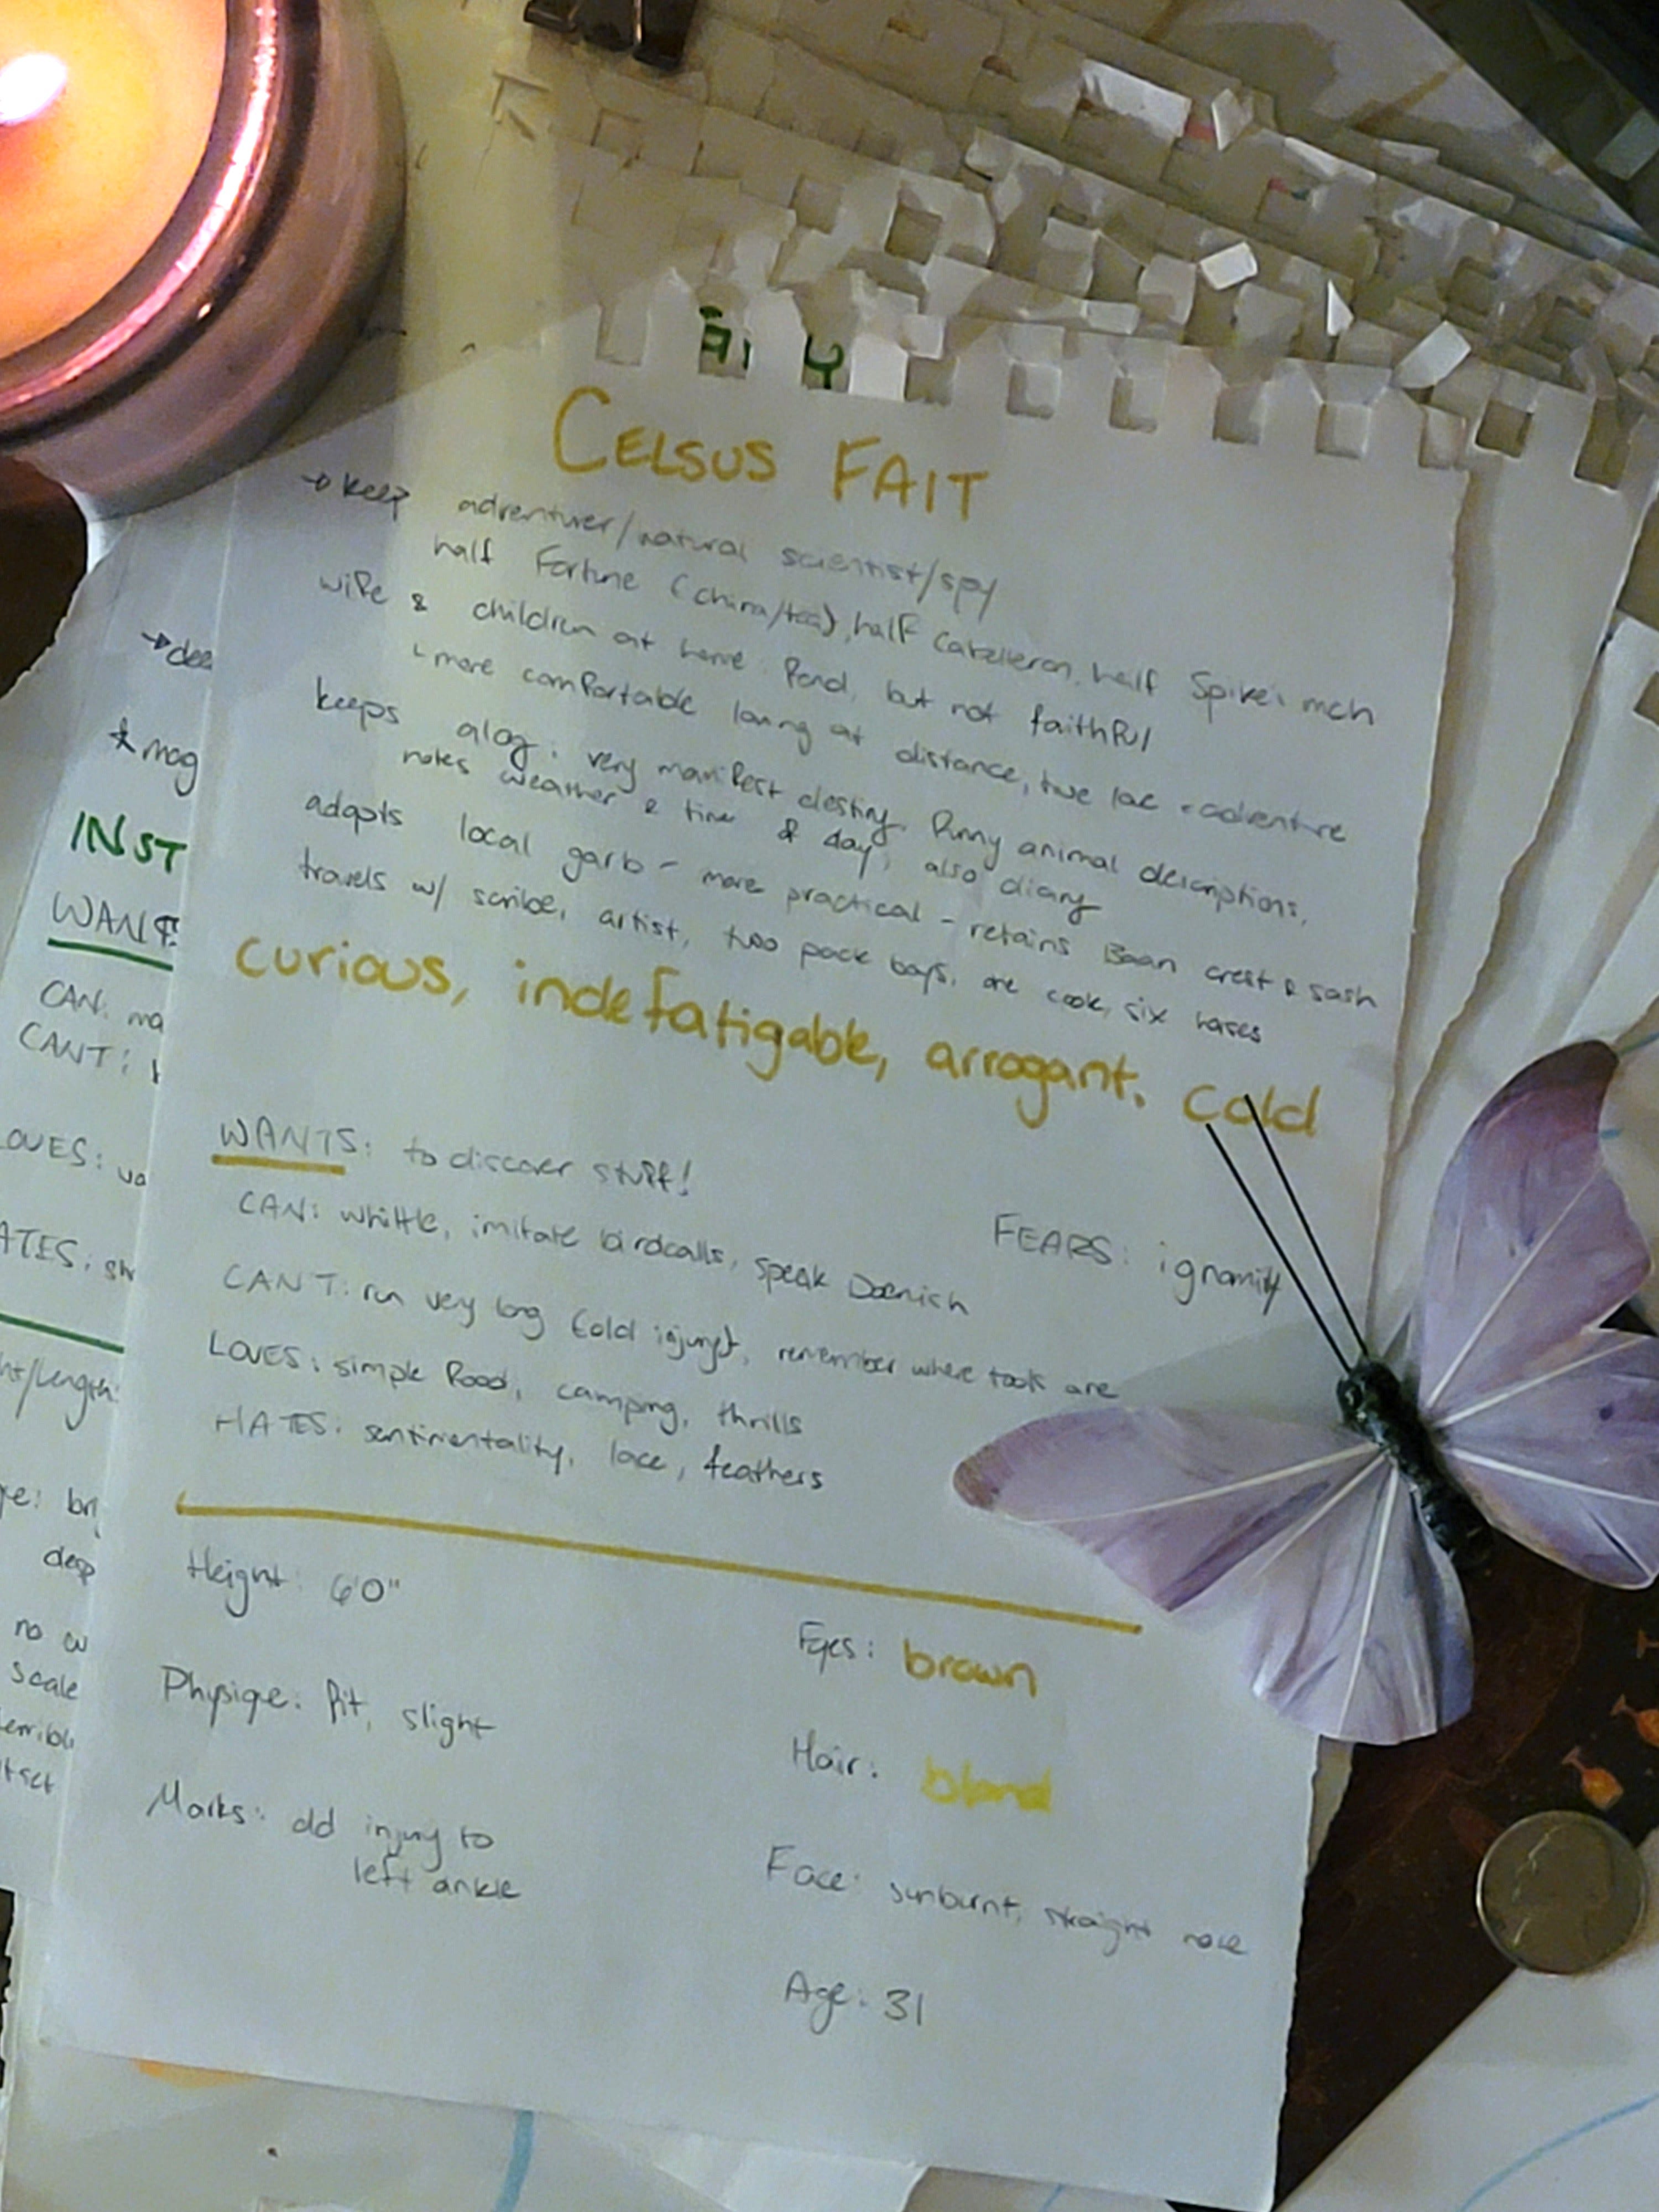 CELSUS FAIT
→ keep
adventurer/natural scientist/spy
half Fortune (china/tea), half Caballeron, half Spike
wife & children at home. Fond, but not faithful
more comfortable loving at distance, true love = adventure
keeps a log: very manifest destiny. Funny animal descriptions,
notes weather & time & day, also diary
adopts local garb - more practical - retains crest & sash
travels w/ scribe, artist, two pack boys, one cook, six horses
curious, indefatigable, arrogant. cold
WANTS: to discover stuff!
CAN: whittle, imitate birdcalls, speak
FEARS: ignominy
CAN'T: run very long (old injury), remember where tools are
LOVES: simple food, camping, thrills
HATES: sentimentality, lace, feathers
Height: 6'0"
Eyes: brown
Physique: fit, slight
Hair: blond
Marks: old injury to
left ankle
Face: sunburnt, straight nose
Age: 31
INST
WANTS
CAN: ma
CANT:
OVES: va
ATES: sh
ht/Length:
no
scale